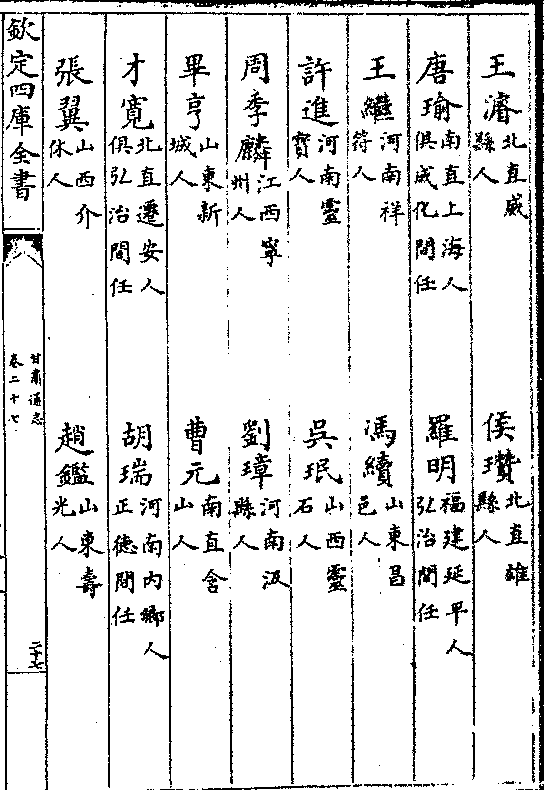 王濬北直威縣人　侯瓚北直雄縣人
唐瑜南直上海人俱成化間任　羅明福建延平人弘治間任
王繼河南祥符人　馮續山東昌邑人
許進河南靈寳人　吳珉山西靈石人
周季麟江西寧州人　劉璋河南汲縣人
畢亨山東新城人　曹元南直含山人
才寛北直遷安人俱弘治間任　胡瑞河南内鄉人正德間任
張翼山西介休人　趙鑑山東壽光人
欽定四庫全書　甘肅通志卷二十七　二十七